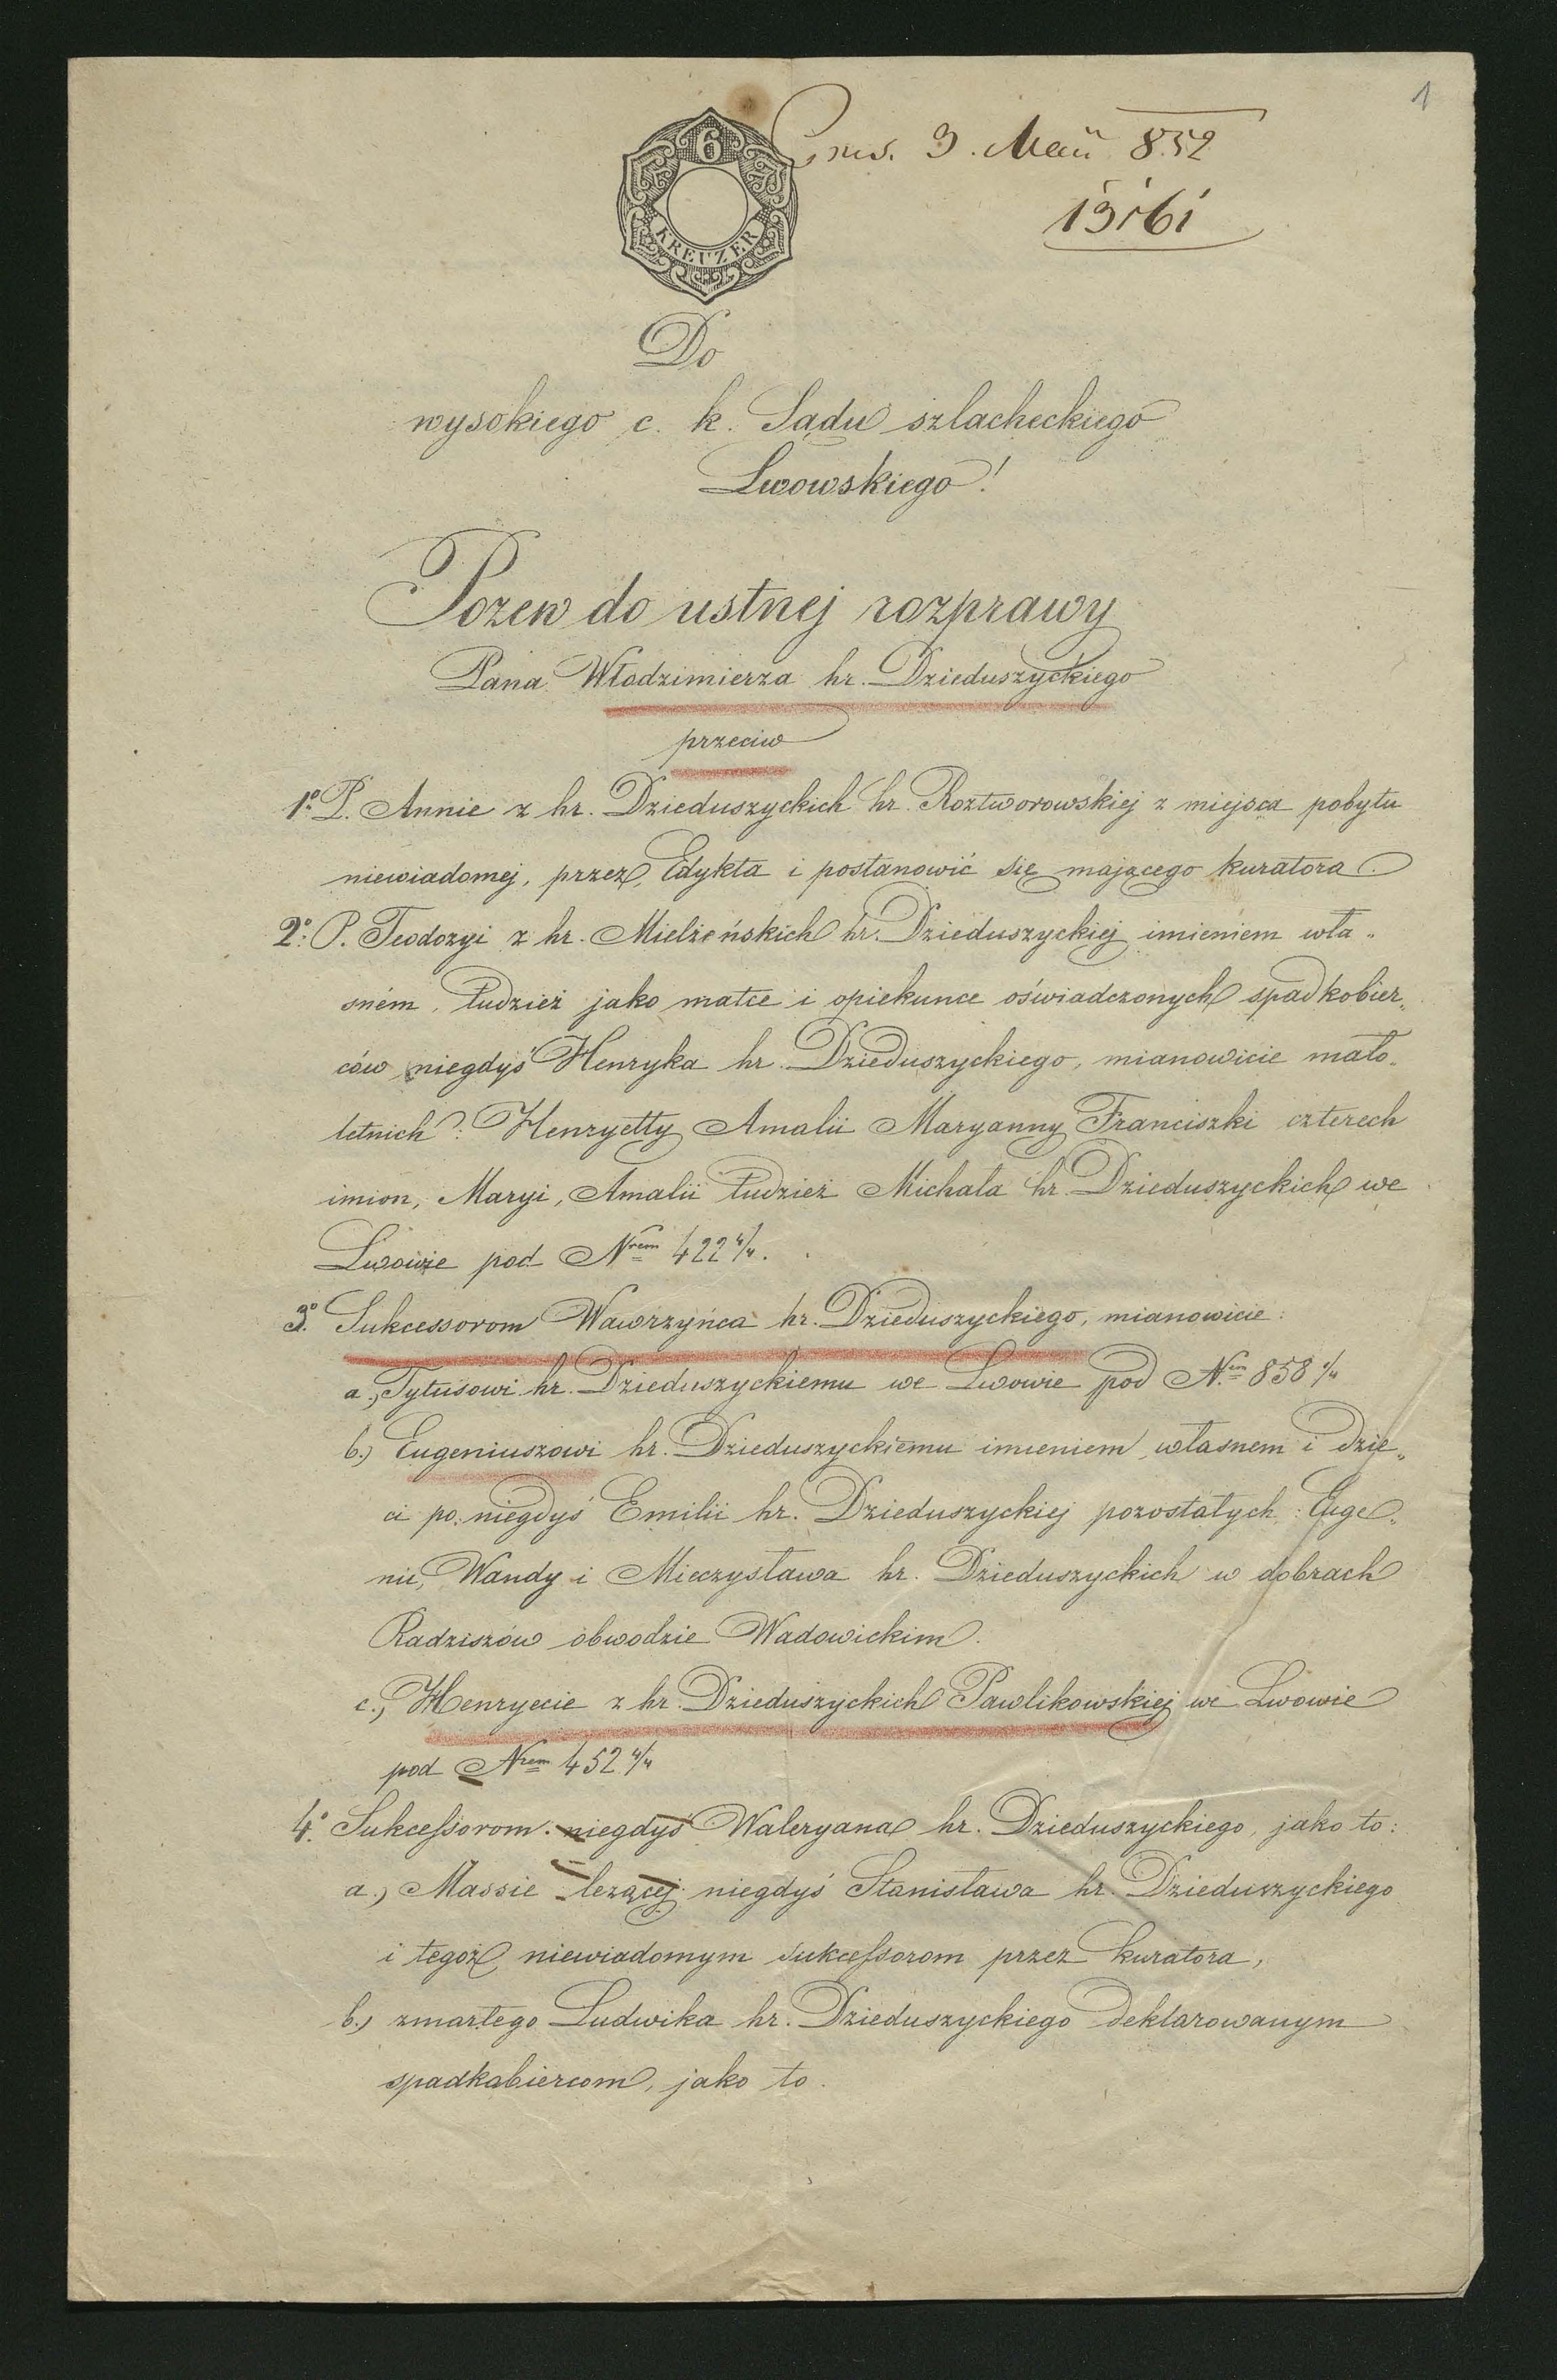 1
6
KREUZER
Prs. 3. Maii 852
13161
Do
wysokiego c. k. Sądu szlacheckiego
Lwowskiego!
Pozew do ustnej rozprawy
Pana Włodzimierza hr. Dzieduszyckiego
przeciw
1º P. Annie z hr. Dzieduszyckich hr. Roztworowskiej z miejsca pobytu
niewiadomej, przez Edykta i postanowić się mającego kuratora.
2º: P. Teodozyi z hr. Mielżeńskich hr. Dzieduszyckiej imieniem wła„
sném, tudzież jako matce i opiekunce oświadczonych spadkobier„
ców niegdyś Henryka hr. Dzieduszyckiego, mianowicie mało„
letnich: Henryetty Amalii Maryanny Franciszki czterech
imion, Maryi, Amalii tudzież Michała hr. Dzieduszyckich we
Lwowie pod Nrem 422 4/4.
3º. Sukcessorom Wawrzyńca hr. Dzieduszyckiego, mianowicie:
a., Tytusowi hr. Dzieduszyckiemu we Lwowie pod Nem 858
b.) Eugeniuszowi hr. Dzieduszyckiemu imieniem własnem i dzie„
ci po niegdyś Emilii hr. Dzieduszyckiej pozostałych: Euge„
nii, Wandy i Mieczysława hr. Dzieduszyckich w dobrach
Radziszów obwodzie Wadowickim.
c., Henryecie z hr. Dzieduszyckich Pawlikowskiej we Lwowie
pod Nrem 452 4/4
4º. Sukcessorom niegdyś Waleryana hr. Dzieduszyckiego, jako to:
a., Massie leżącej niegdyś Stanisława hr. Dzieduszyckiego
i tegoż niewiadomym sukcessorom przez kuratora,
b., zmarłego Ludwika hr. Dzieduszyckiego deklarowanym
spadkabiercom, jako to.